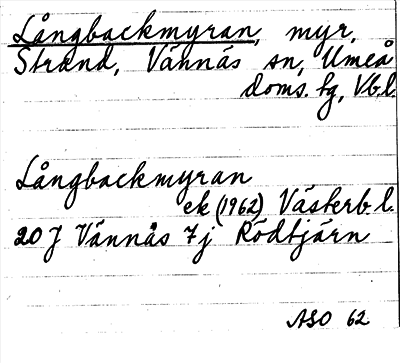 Långbackmyran, myr.
Strand, Vännäs sn, Umeå
doms. fg, Vb.l.
Långbackmyran
ek (1962) Västerb.l.
20 J Vännås 7 j Rödtjärn
ASO 62